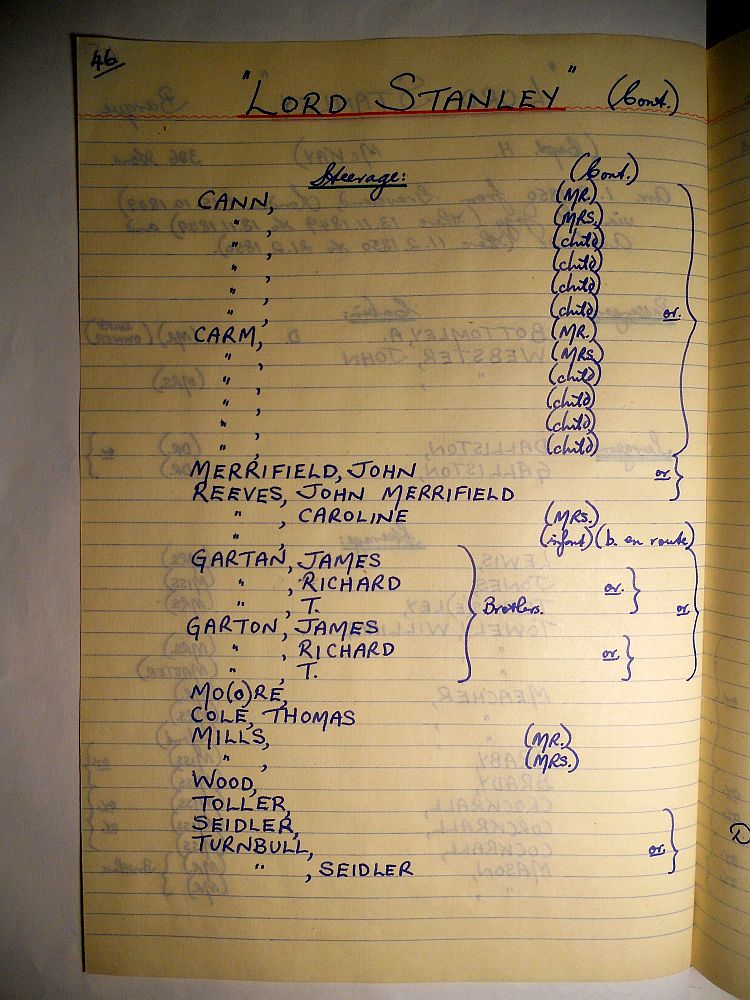 46
"LORD STANLEY" (Cont.)
Steerage: (Cont.)
CANN, (MR.)
" , (MRS.)
" , (child)
" , (child)
" , (child)
" , (child) or.
CARM, (MR.)
" , (MRS)
" , (child)
" , (child)
" , (child)
" , (child)
MERRIFIELD, JOHN or
REEVES, JOHN MERRIFIELD
" , CAROLINE (MRS.)
" , (infant) (b. en route)
GARTAN, JAMES
" , RICHARD or.
" , T. Brothers. or
GARTON, JAMES
" , RICHARD or
" , T.
MO(O)RE,
COLE, THOMAS
MILLS, (MR.)
" , (MRS.)
WOOD,
TOLLER,
SEIDLER,
TURNBULL, or
" , SEIDLER